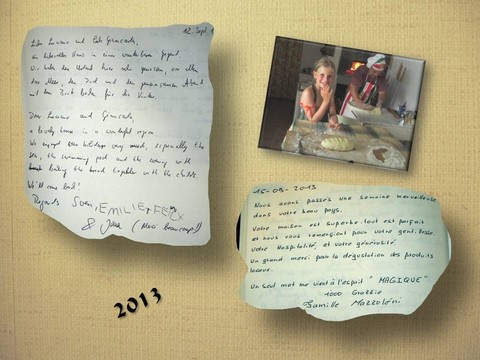 12. Sept.
Liebe und Giancarlo,
ein liebevolles Haus in einer wunderbaren Gegend.
Wir haben den Urlaub hier sehr genossen, vor allem
das Meer, den Pool und den gemeinsamen Abend
mit dem Brot für die Kinder.
Dear and Giancarlo,
a lovely home in a wonderful region.
We enjoyed our holidays very much, especially the
sea, the swimming pool and the evening with
baking the bread together with the childs.
We'll come back!
Regards Sven, EMILIE + FELIX
& (Merci beaucoup!!)
15-09-2013
Nous avons passés une semaine merveilleuse
dans votre beau pays.
Votre maison est superbe. tout est parfait
et nous vous remercions pour votre gentillesse
votre hospitalité, et votre générosité.
Un grand merci pour la dégustation des produits
locaux.
Un seul mot me vient à l'esprit " MAGIQUE"
1000 Grazzie
Famille Mazzoléni
2013